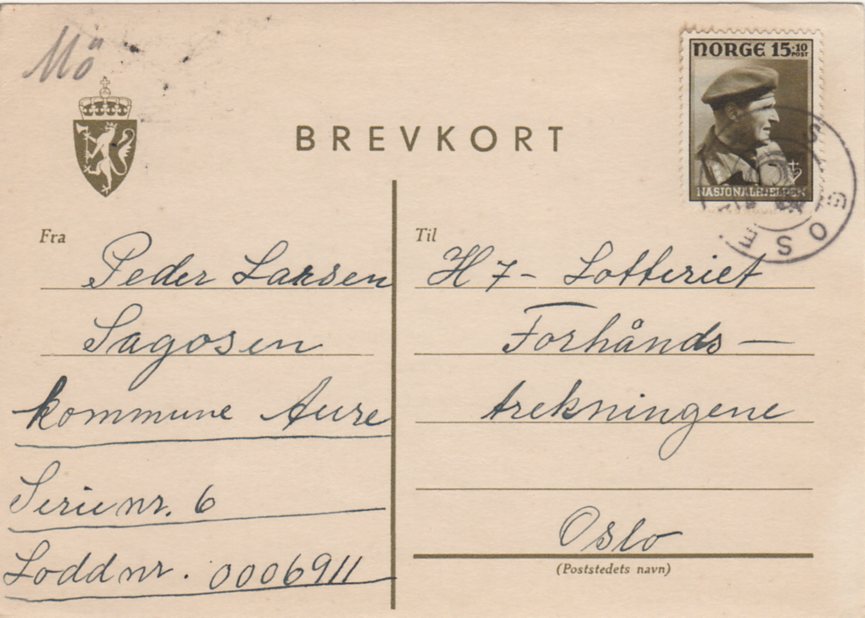 Mö
BREVKORT
NORGE 15+10
POST
NASJONALHJELPEN
SAGOSEN
Fra
Peder Larsen
Sagosen
kommune Aure
Serienr. 6
Loddnr. 0006911
Til
H 7 - Lotteriet
Forhånds-
trekningene
Oslo
(Poststedets navn)